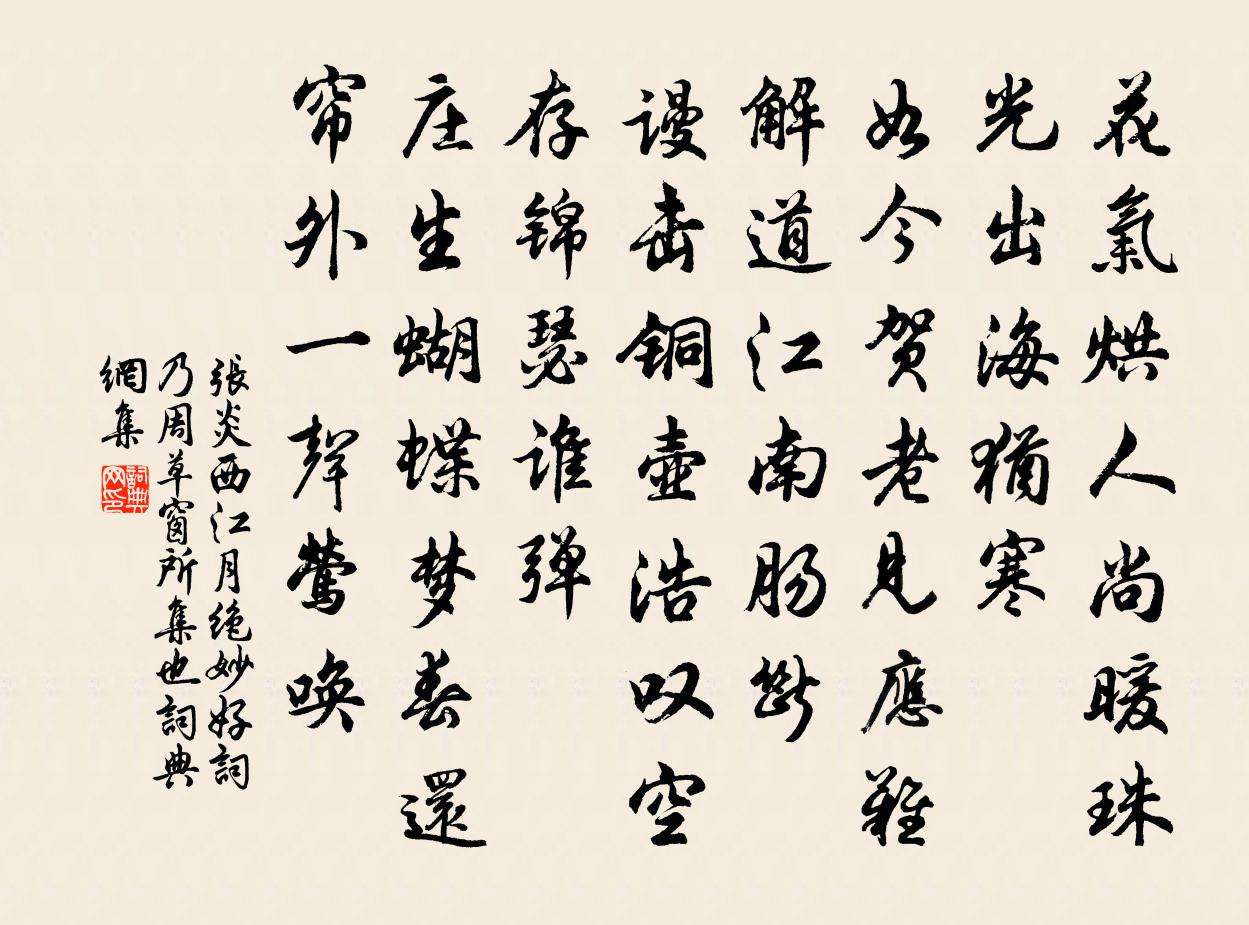 花氣烘人尚暖珠
光出海猶寒
如今贺老見應難
解道江南肠断
谩击銅壶浩叹空
存锦瑟谁弹
庄生蝴蝶梦春還
帘外一聲莺唤
張炎西江月绝妙好詞
乃周草窗所集也詞典
網集
詞典网印